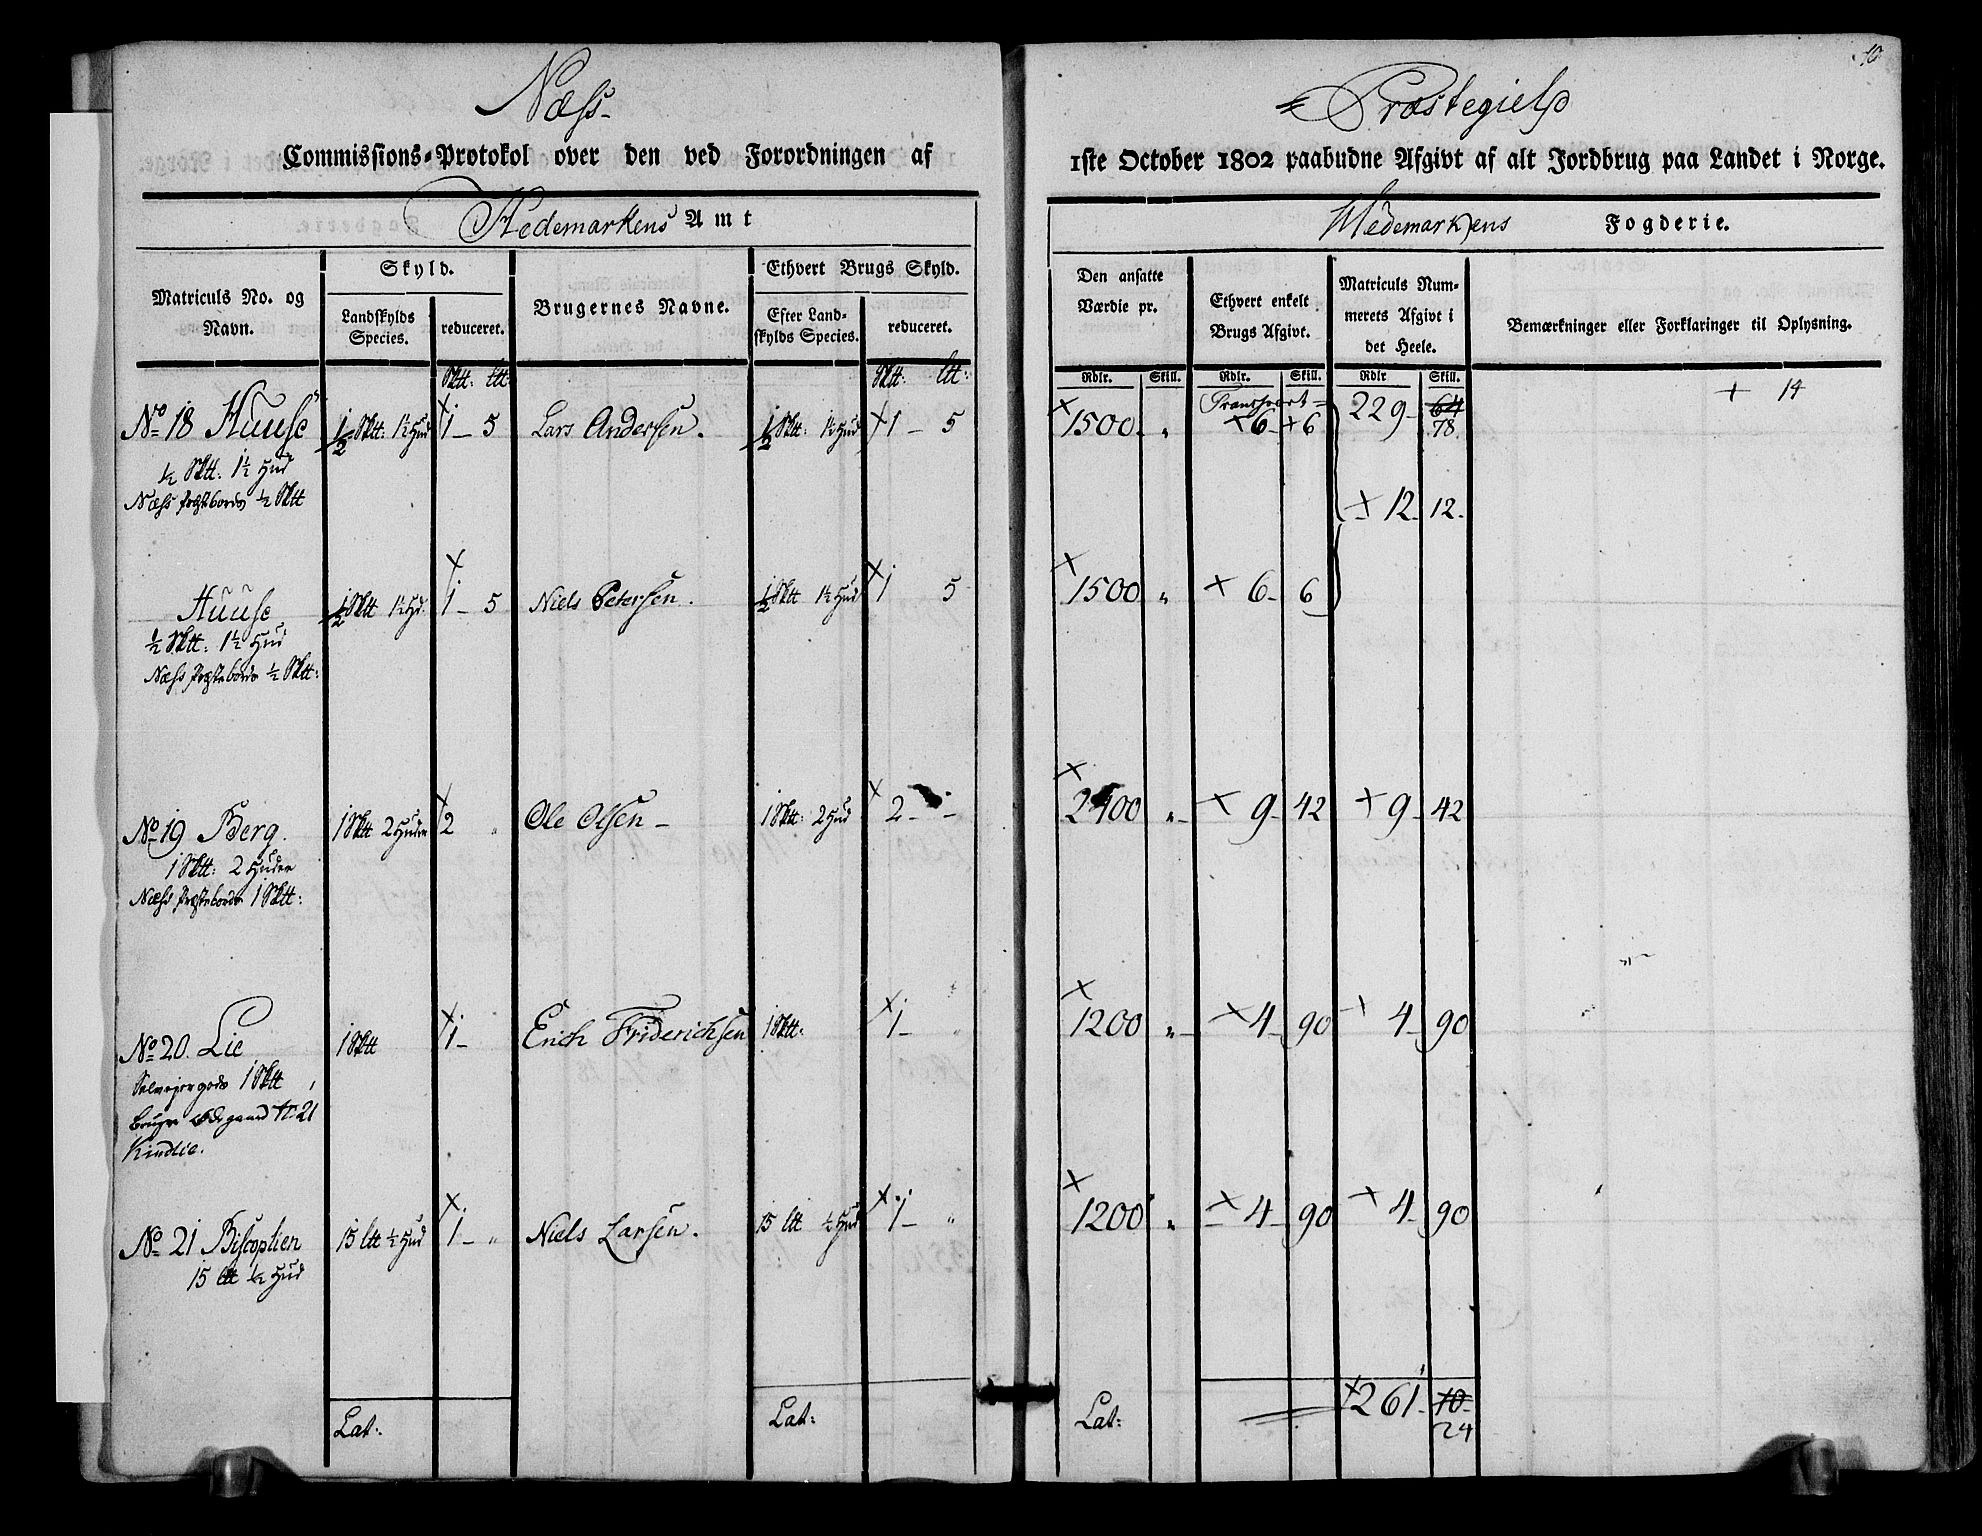 Næss
Commissions-Protokol over den ved Forordningen af
Hedemarkens Amt
Matriculs No. og Navn.
Skyld.
Landskylds Species.
reduceret.
Brugernes Navne.
Ethvert Brugs Skyld.
Efter Landskylds Species.
reduceret.
Sktt: ltt: Sktt: ltt:
No 18 Huuse ½ Sktt: 1½ Hud 1 - 5 Lars Andersen. ½ Sktt: 1½ Hud 1 - 5
½ Sktt: 1½ Hud
Næss Præstebords ½ Sktt
Huuse ½ Sktt 1½ Hd. 1 - 5 Niels Petersen. ½ Sktt 1½ Hud 1 5
½ Sktt: 1½ Hud
Næss Præstebords ½ Sktt:
No 19 Berg. 1 Sktt 2 Huder 2 „ Ole Olsen - 1 Sktt: 2 Hud 2 - -
1 Sktt: 2 Huder
Næss Præstebords 1 Sktt:
No 20. Lie 1 Sktt 1 - Erich Friderichsen 1 Sktt: 1 - „
Selveiergods 1 Sktt
bruger Ødegaard N: 21
Kindlie.
No 21 Biscoplien 15 ltt ½ Hud 1 - „ Niels Larsen. 15 ltt ½ Hud 1 - „
15 ltt ½ Hud
Lat: Lat:
10
Præstegield
1ste October 1802 paabudne Afgivt af alt Jordbrug paa Landet i Norge.
Hedemarkens Fogderie.
Den ansatte Værdie pr.
Ethvert enkelt Brugs Afgivt.
Matriculs Nummerets Afgivt i det Heele.
Bemærkninger eller Forklaringer til Oplysning.
Rdlr. Skill. Rdlr. Skill. Rdlr Skill.
Transport = 229 - 64 + 14
1500 „ 6 - 6 78.
12 - 12 -
1500 „ 6 - 6
2400 „ 9 - 42 9 - 42
1200 „ 4 - 90 4 - 90
1200 „ 4 - 90 4 - 90
Lat: 261 - 10
24